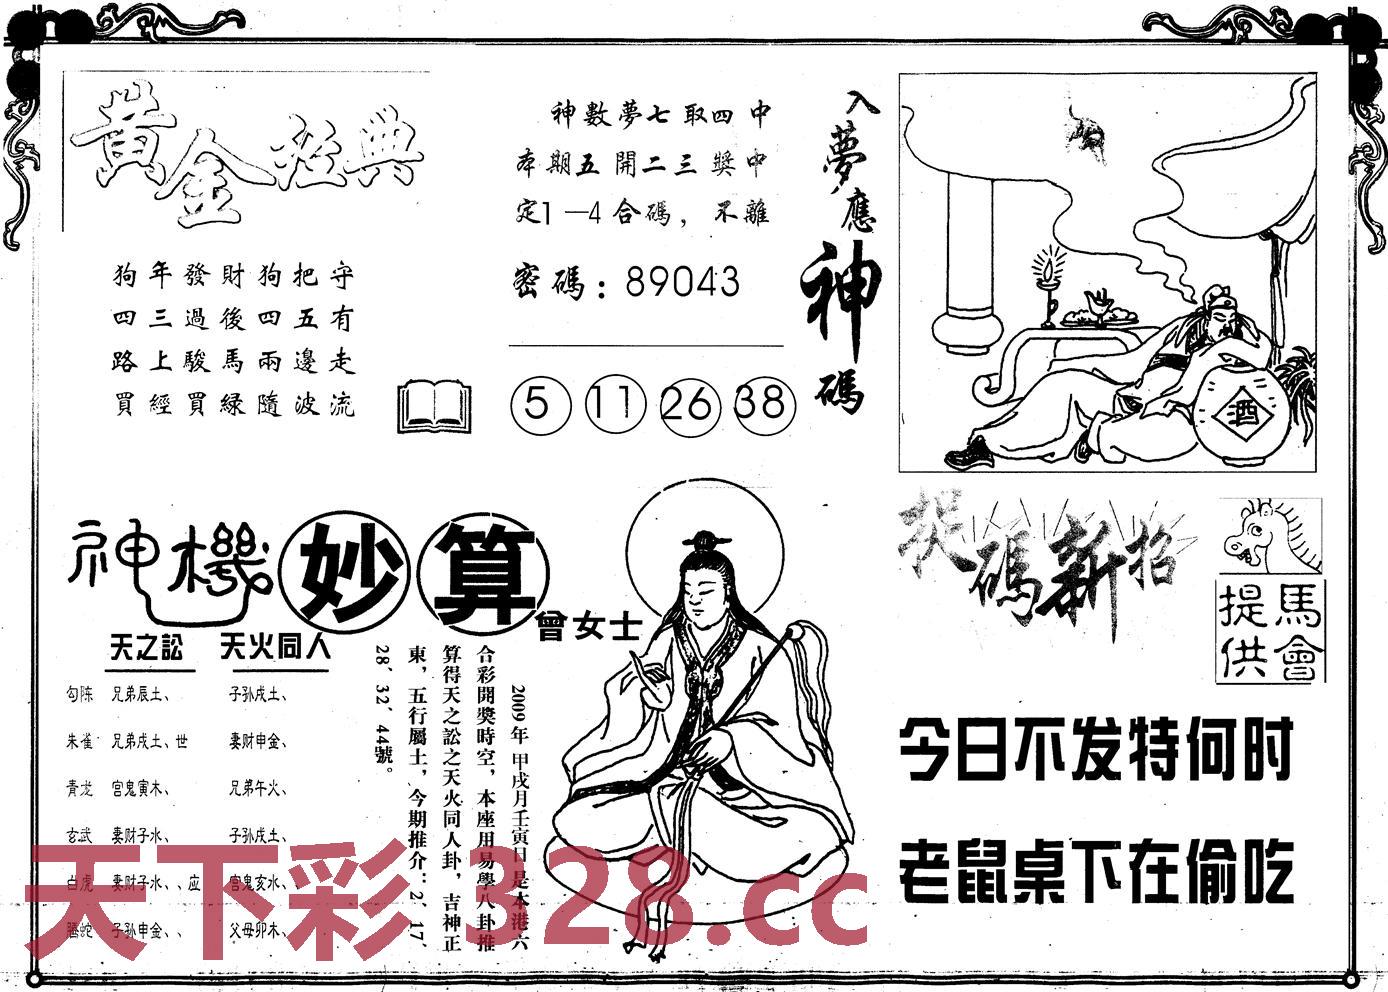 黄金经典
狗年發財狗把守
四三過後四五有
路上駿馬兩邊走
買經買緑隨波流
神數夢七取四中
本期五開二三獎中
定1—4合碼，不離
密碼：89043
5 11 26 38
入夢應神碼
酒
神機妙算
曾女士
天之訟 天火同人
勾陈 兄弟辰土、 子孙戌土、
朱雀 兄弟戌土、世 妻财申金、
青龙 宫鬼寅木、 兄弟午火、
玄武 妻财子水、 子孙戌土、
白虎 妻财子水、、应 宫鬼亥水、
腾蛇 子孙申金、、 父母卯木、
2009年 甲戌月壬寅日 是本港六
合彩開獎時空，本座用易學八卦推
算得天之訟之天火同人卦，吉神正
東，五行屬土，今期推介：2、17、
28、32、44號。
捉碼新招
馬會提供
今日不发特何时
老鼠桌下在偷吃
天下彩 328.cc